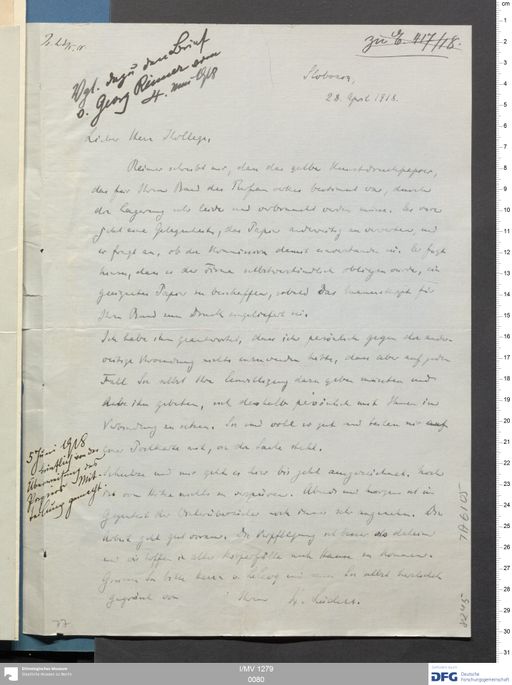 zu E. 417/18.
Vgl. dazu den Brief
v. Georg Reimer vom
4. Mai 1918
28. April 1918.
Lieber Herr Kollege,
Reimer schreibt mir, dass das gelbe Kunstdruckpapier,
das für Ihren Band des Turfan bestimmt war, durch
die Lagerung sehr leide und verbraucht werden müsse. Es wäre
jetzt eine Gelegenheit, das Papier anderweitig zu verwerten, und
er fragt an, ob die Kommission damit einverstanden sei. Er fügt
hinzu, dass es der Firma selbstverständlich obliegen würde, ein
geeignetes Papier zu beschaffen, sobald das Manuskript für
Ihren Band zum Druck eingeliefert sei.
Ich habe ihm geantwortet, dass ich persönlich gegen die ander-
weitige Verwendung nichts einzuwenden hätte, dass aber auf jeden
Fall Sie selbst Ihre Einwilligung dazu geben müssten und
habe ihn gebeten, sich deshalb persönlich mit Ihnen in
Verbindung zu setzen. Sie sind wohl so gut und teilen mir auf
einer Postkarte mit, wie die Sache steht.
und mir geht es hier bis jetzt ausgezeichnet. Noch
ist von Hitze nichts zu verspüren. Abends und morgens ist im
Gegenteil der noch immer sehr angenehm. Die
Arbeit geht gut voran. Die Verpflegung ist besser als daheim
und wir hoffen in alter Körperfülle nach Hause zu kommen.
Grüssen Sie bitte Herrn v. Lecoq und seien Sie selbst herzlichst
gegrüsst von Ihrem H. Lüders.
5 Juni 1918
Überweisung des
Papiers Mit-
teilung gemacht.
77
TA 6105
8245
I/MV 1279
0080
Ethnologisches Museum
Staatliche Museen zu Berlin
DFG
Deutsche
Forschungsgemeinschaft